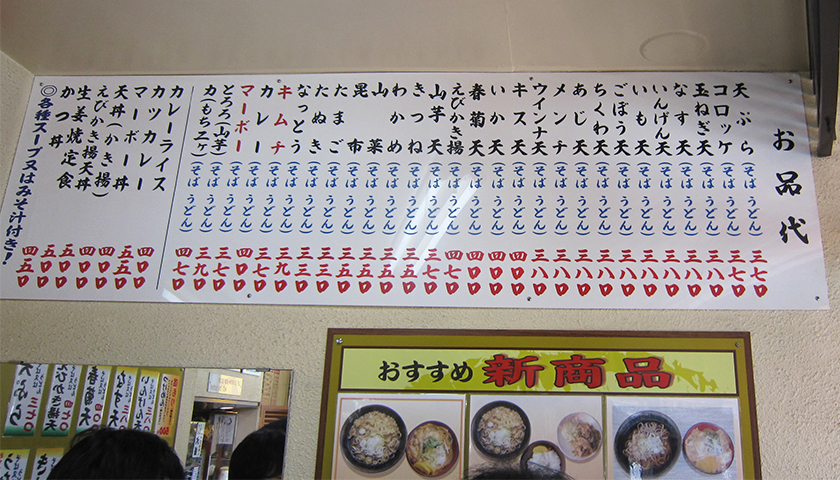 お品代
天ぷら（そば うどん）三七〇
コロッケ（そば うどん）三七〇
玉ねぎ天（そば うどん）三八〇
なす天（そば うどん）三八〇
いんげん天（そば うどん）三八〇
いも天（そば うどん）三八〇
ごぼう天（そば うどん）三八〇
ちくわ天（そば うどん）三八〇
あじ天（そば うどん）三八〇
メンチ（そば うどん）三八〇
ウインナ天（そば うどん）三八〇
キス天（そば うどん）四〇〇
いか天（そば うどん）四〇〇
春菊天（そば うどん）四〇〇
えびかき揚（そば うどん）四七〇
山芋天（そば うどん）三七〇
きつね（そば うどん）三五〇
わかめ（そば うどん）三五〇
山菜（そば うどん）三五〇
昆布（そば うどん）三五〇
たまご（そば うどん）三三〇
たぬき（そば うどん）三三〇
なっとう（そば うどん）三九〇
キムチ（そば うどん）三七〇
カレー（そば うどん）四〇〇
マーボー（そば うどん）三七〇
とろろ（山芋）（そば うどん）三九〇
力もち二ヶ（そば うどん）四七〇
カレーライス 四〇〇
カツカレー 五五〇
マーボー丼
天丼（かき揚）
えびかき揚天丼
生姜焼定食
かつ丼 四五〇
◎各種スープ又はみそ汁付き！
おすすめ 新商品
いんげん天
なす天
春菊天
えびかき揚天
天ぷら